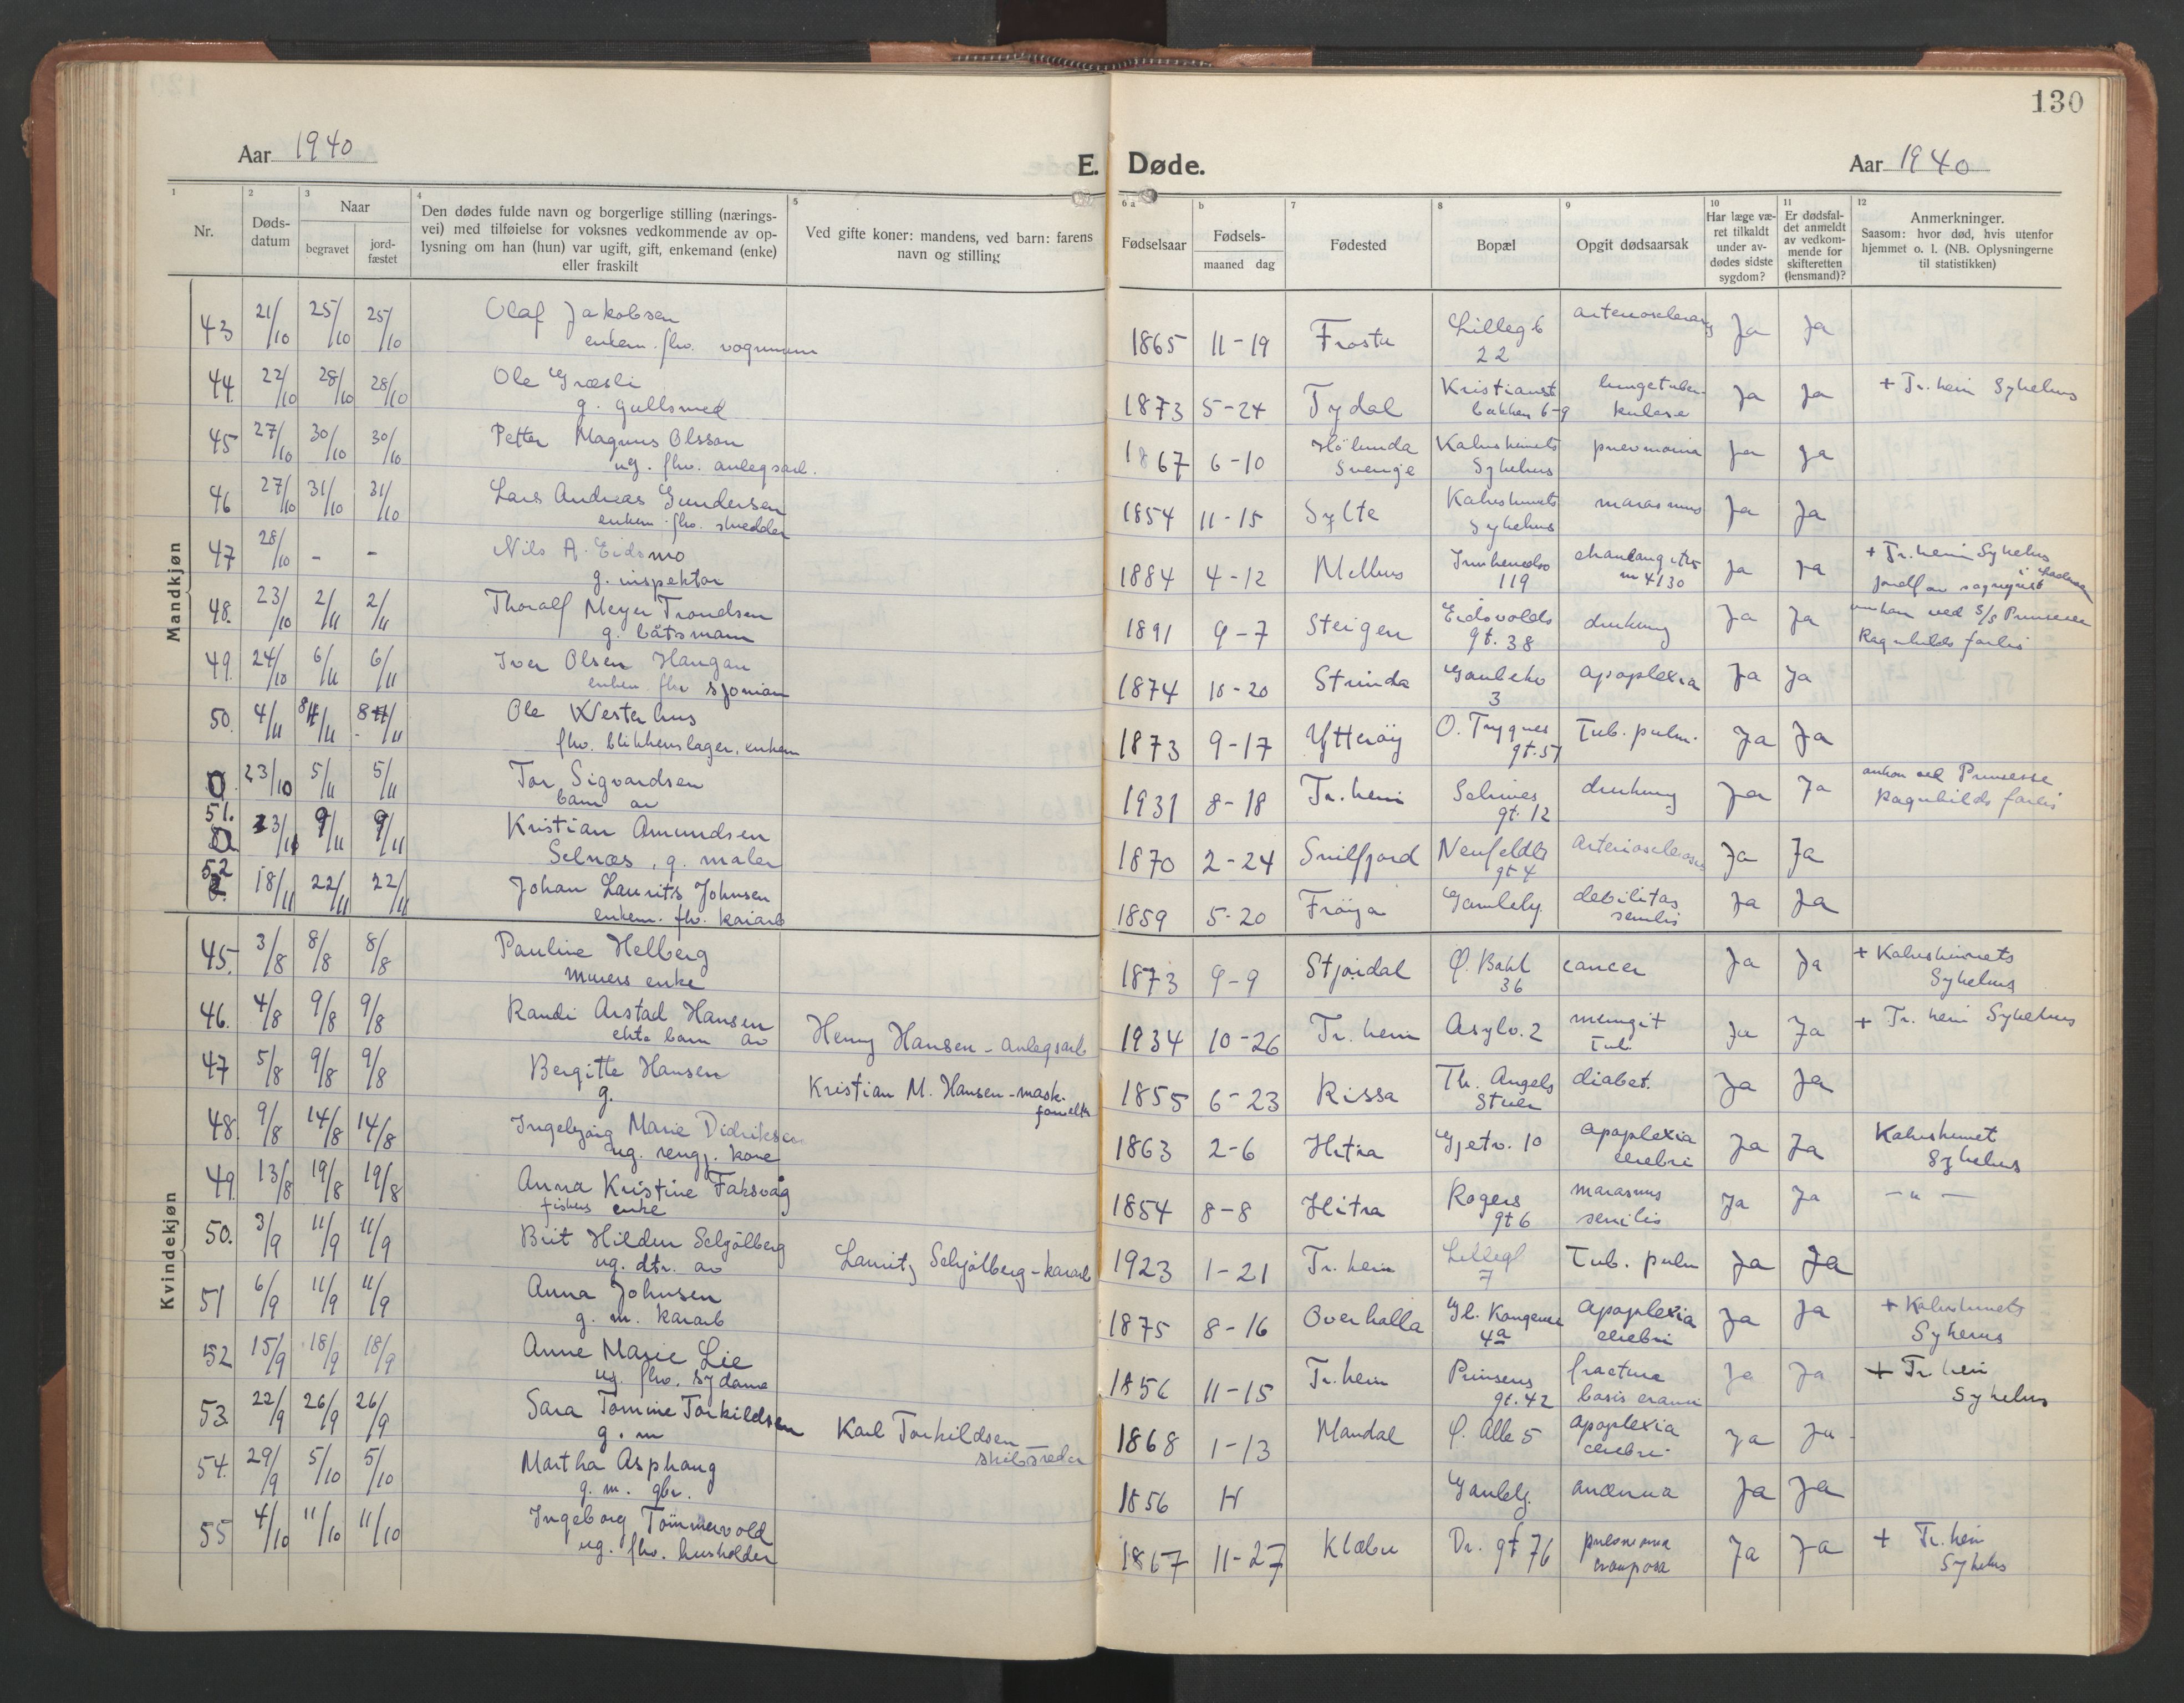 130
Aar 1940
E. Døde.
Aar 1940
1
2
3
4
5
6 a
b
7
8
9
10
11
12
Nr.
Døds-
datum
Naar
begravet
jord-
fæstet
Den dødes fulde navn og borgerlige stilling (nærings-
vei) med tilføielse for voksnes vedkommende av op-
lysning om han (hun) var ugift, gift, enkemand (enke)
eller fraskilt
Ved gifte koner: mandens, ved barn: farens
navn og stilling
Fødselsaar
Fødsels-
maaned dag
Fødested
Bopæl
Opgit dødsaarsak
Har læge væ-
ret tilkaldt
under av-
dødes sidste
sygdom?
Er dødsfal-
det anmeldt
av vedkom-
mende for
skifteretten
(lensmand)?
Anmerkninger.
Saasom: hvor død, hvis utenfor
hjemmet o. l. (NB. Oplysningerne
til statistikken)
Mandkjøn
43 21/10 25/10 25/10 Olaf Jakobsen 1865 11-19 Frosta Lilleg 6 Ja Ja
enkem. fhv. vognmann 22
44. 22/10 28/10 28/10 Ole Græsli 1873 5-24 Tydal Kristianst lungetuber- Ja Ja + Tr.heim Sykehus
g. gullsmed bakken 6-9 kulose
45 27/10 30/10 30/10 Petter Magnus Olsson 1867 6-10 Hölunda Kalvskinnets pneumonia Ja Ja
ug. fhv. anlegsarb. Sverige Sykehus
46 27/10 31/10 31/10 Lars Andreas Gundersen 1854 11-15 Sylte Kalvskinnets marasmus Ja Ja
enkem. fhv. skredder Sykehus
47 28/10 - - Nils A. Eidsmo 1884 4-12 Melhus 119 Ja Ja + Tr.heim Sykehus
g. inspektør
48. 23/10 2/11 2/11 Thoralf Meyer Trondsen 1891 9-7 Steigen Eidsvolds drukning Ja Ja omkom ved S/S Prinsesse
g. båtsmann gt. 38 Ragnhilds forlis
49. 24/10 6/11 6/11 Iver Olsen Haugan 1874 10-20 Strinda apoplexia Ja Ja
enkem. fhv sjömann 3
50. 4/11 8/11 8/11 Ole Westerhus 1873 9-17 Ytteröy O. Trygves Tub. pulm. Ja Ja
fhv. blikkenslager, enkem gt. 51
23/10 5/11 5/11 Tor Sigvardsen 1931 8-18 Tr.heim Selnes drukning Ja Ja omkom ved Prinsesse
barn av gt. 12 Ragnhilds forlis
51. 9/11 9/11 Kristian Amundsen 1870 2-24 Snilfjord Neufeldts Arteriosclerosis Ja Ja
Selnæs, g. maler gt 4
52 18/11 22/11 22/11 Johan Laurits Johnsen 1859 5-20 Fröya Gamleby. debilitas Ja Ja
enkem. fhv. kaiarb senilis
Kvindekjøn
45. 3/8 8/8 8/8 Pauline Helberg 1873 9-9 Stjørdal Ø. Bakl cancer Ja Ja + Kalvskinnets
murers enke 36 Sykehus
46. 4/8 9/8 9/8 Randi Arstad Hansen Henry Hansen - anlegsarb 1934 10-26 Tr.heim Asylv. 2 meningit Ja Ja + Tr.heim Sykehus
ekte barn av tub
47 5/8 9/8 9/8 Bergitte Hansen Kristian M. Hansen - mask. 1855 6-23 Rissa Th. Angels diabet. Ja Ja
g. Stuer
48. 9/8 14/8 14/8 Ingebjørg Marie Didriksen 1863 2-6 Hitra Gjetv. 10 apoplexia Ja Ja Kalvskinnet
ug. rengj. kone cerebri Sykehus
49. 13/8 19/8 19/8 Anna Kristine Faksvåg 1854 8-8 Hitra Rogers marasmus Ja Ja - " -
fiskers enke gt 6 senilis
50. 3/9 11/9 11/9 Brit Hildur Schjölberg Lauritz Schjölberg - kaiarb 1923 1-21 Tr.heim Lillegt Tub. pulm Ja Ja
ug. dtr. av 7
51 6/9 11/9 11/9 Anna Johnsen 1875 8-16 Overhalla Gl. Kongevei apoplexia Ja Ja + Kalvskinnets
g. m. kaiarb 4a cerebri Sykehus
52 15/9 18/9 18/9 Anne Marie Lie 1856 11-15 Tr.heim Prinsens fractura Ja Ja + Tr.heim
ug. fhv. sydame gt. 42 basis cranii Sykehus
53. 22/9 26/9 26/9 Sara Tomine Torkildsen Karl Torkildsen 1868 1-13 Mandal Ø. Alle 5 apoplexia Ja Ja
g. m skibsreder cerebri
54. 29/9 5/10 5/10 Martha Asphaug 1856 H Gamleby. anæmia Ja Ja
g. m. gbr.
55 4/10 11/10 11/10 Ingeborg Tømmervold 1867 11-27 Klæbu Dr. gt 76 pneumonia Ja Ja + Tr.heim
ug. fhv. husholder crouposa Sykehus